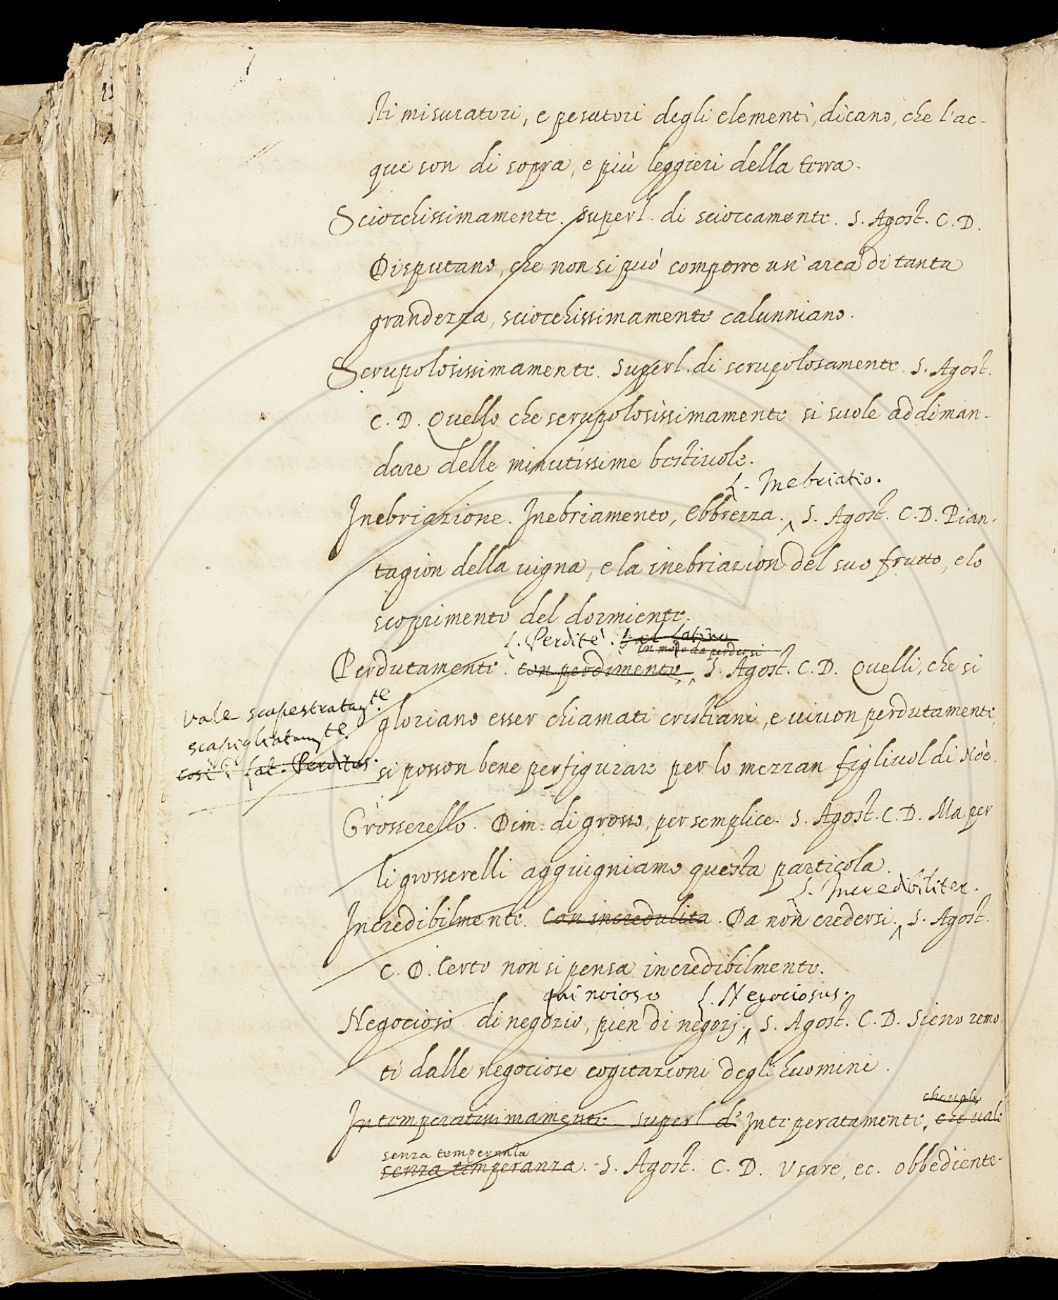 21
sti misuratori, e pesatori degli elementi, dicano, che l'ac-
que son di sopra, e più leggieri della terra.
Sciocchissimamente. superl. di scioccamente. S. Agost. C. D.
Disputano, che non si può comporre un'arca di tanta
grandezza, sciocchissimamente calunniano.
Scrupolosissimamente. superl. di scrupolosamente. S. Agost.
C. D. Quello che scrupolosissimamente si suole addiman-
dare delle minutissime bestivole.
L. Inebriatio.
Inebriazione. Inebriamento, Ebbrezza. S. Agost. C. D. Pian-
tagion della vigna, e la inebriazion del suo frutto, e lo
scoprimento del dormiente.
L. Perditè. lat.
in modo da perdersi
Perdutamente. con perdimento. S. Agost. C. D. Quelli, che si
vale scapestratamte
gloriano esser chiamati cristiani, e vivon perdutamente,
scapigliatamte.
così: lat. Perditus.
si posson bene perfigurare per lo mezzan figliuol di Noè.
Grosserello. Dim. di grosso, per semplice. S. Agost. C. D. Ma per
li grosserelli aggiugniamo questa particola.
L. Incredibiliter.
Incredibilmente. Con incredulità. Da non credersi. S. Agost.
C. D. Certo non si pensa incredibilmente.
qui noioso L. Negociosus.
Negocioso. di negozio, pien di negozj. S. Agost. C. D. Sieno remo
ti dalle negociose cogitazioni degli huomini.
che vale
Intemperatissimamente superl di Intemperatamente, che vale
senza temperanza
senza temperanza. S. Agost. C. D. Usare, ec. obbediente-